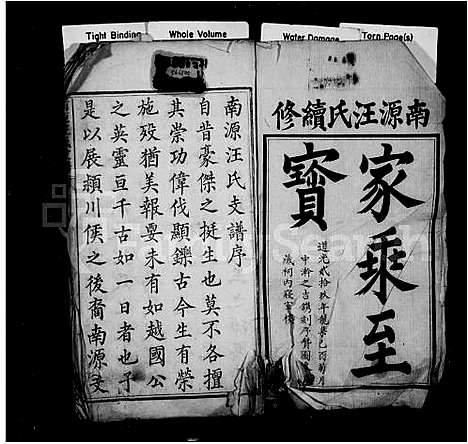 Tight Binding
Whole Volume
Water Damage
Torn Page(s)
南源汪氏續修
家乘至
寶
道光貳拾玖年歲
南源汪氏支譜序
自昔豪傑之挺生也莫不各擅
其崇功偉伐顯鑠古今生有榮
施歿猶美報要未有如越國公
之英靈亘千古如一日者也予
是以展潁川侯之後裔南源支